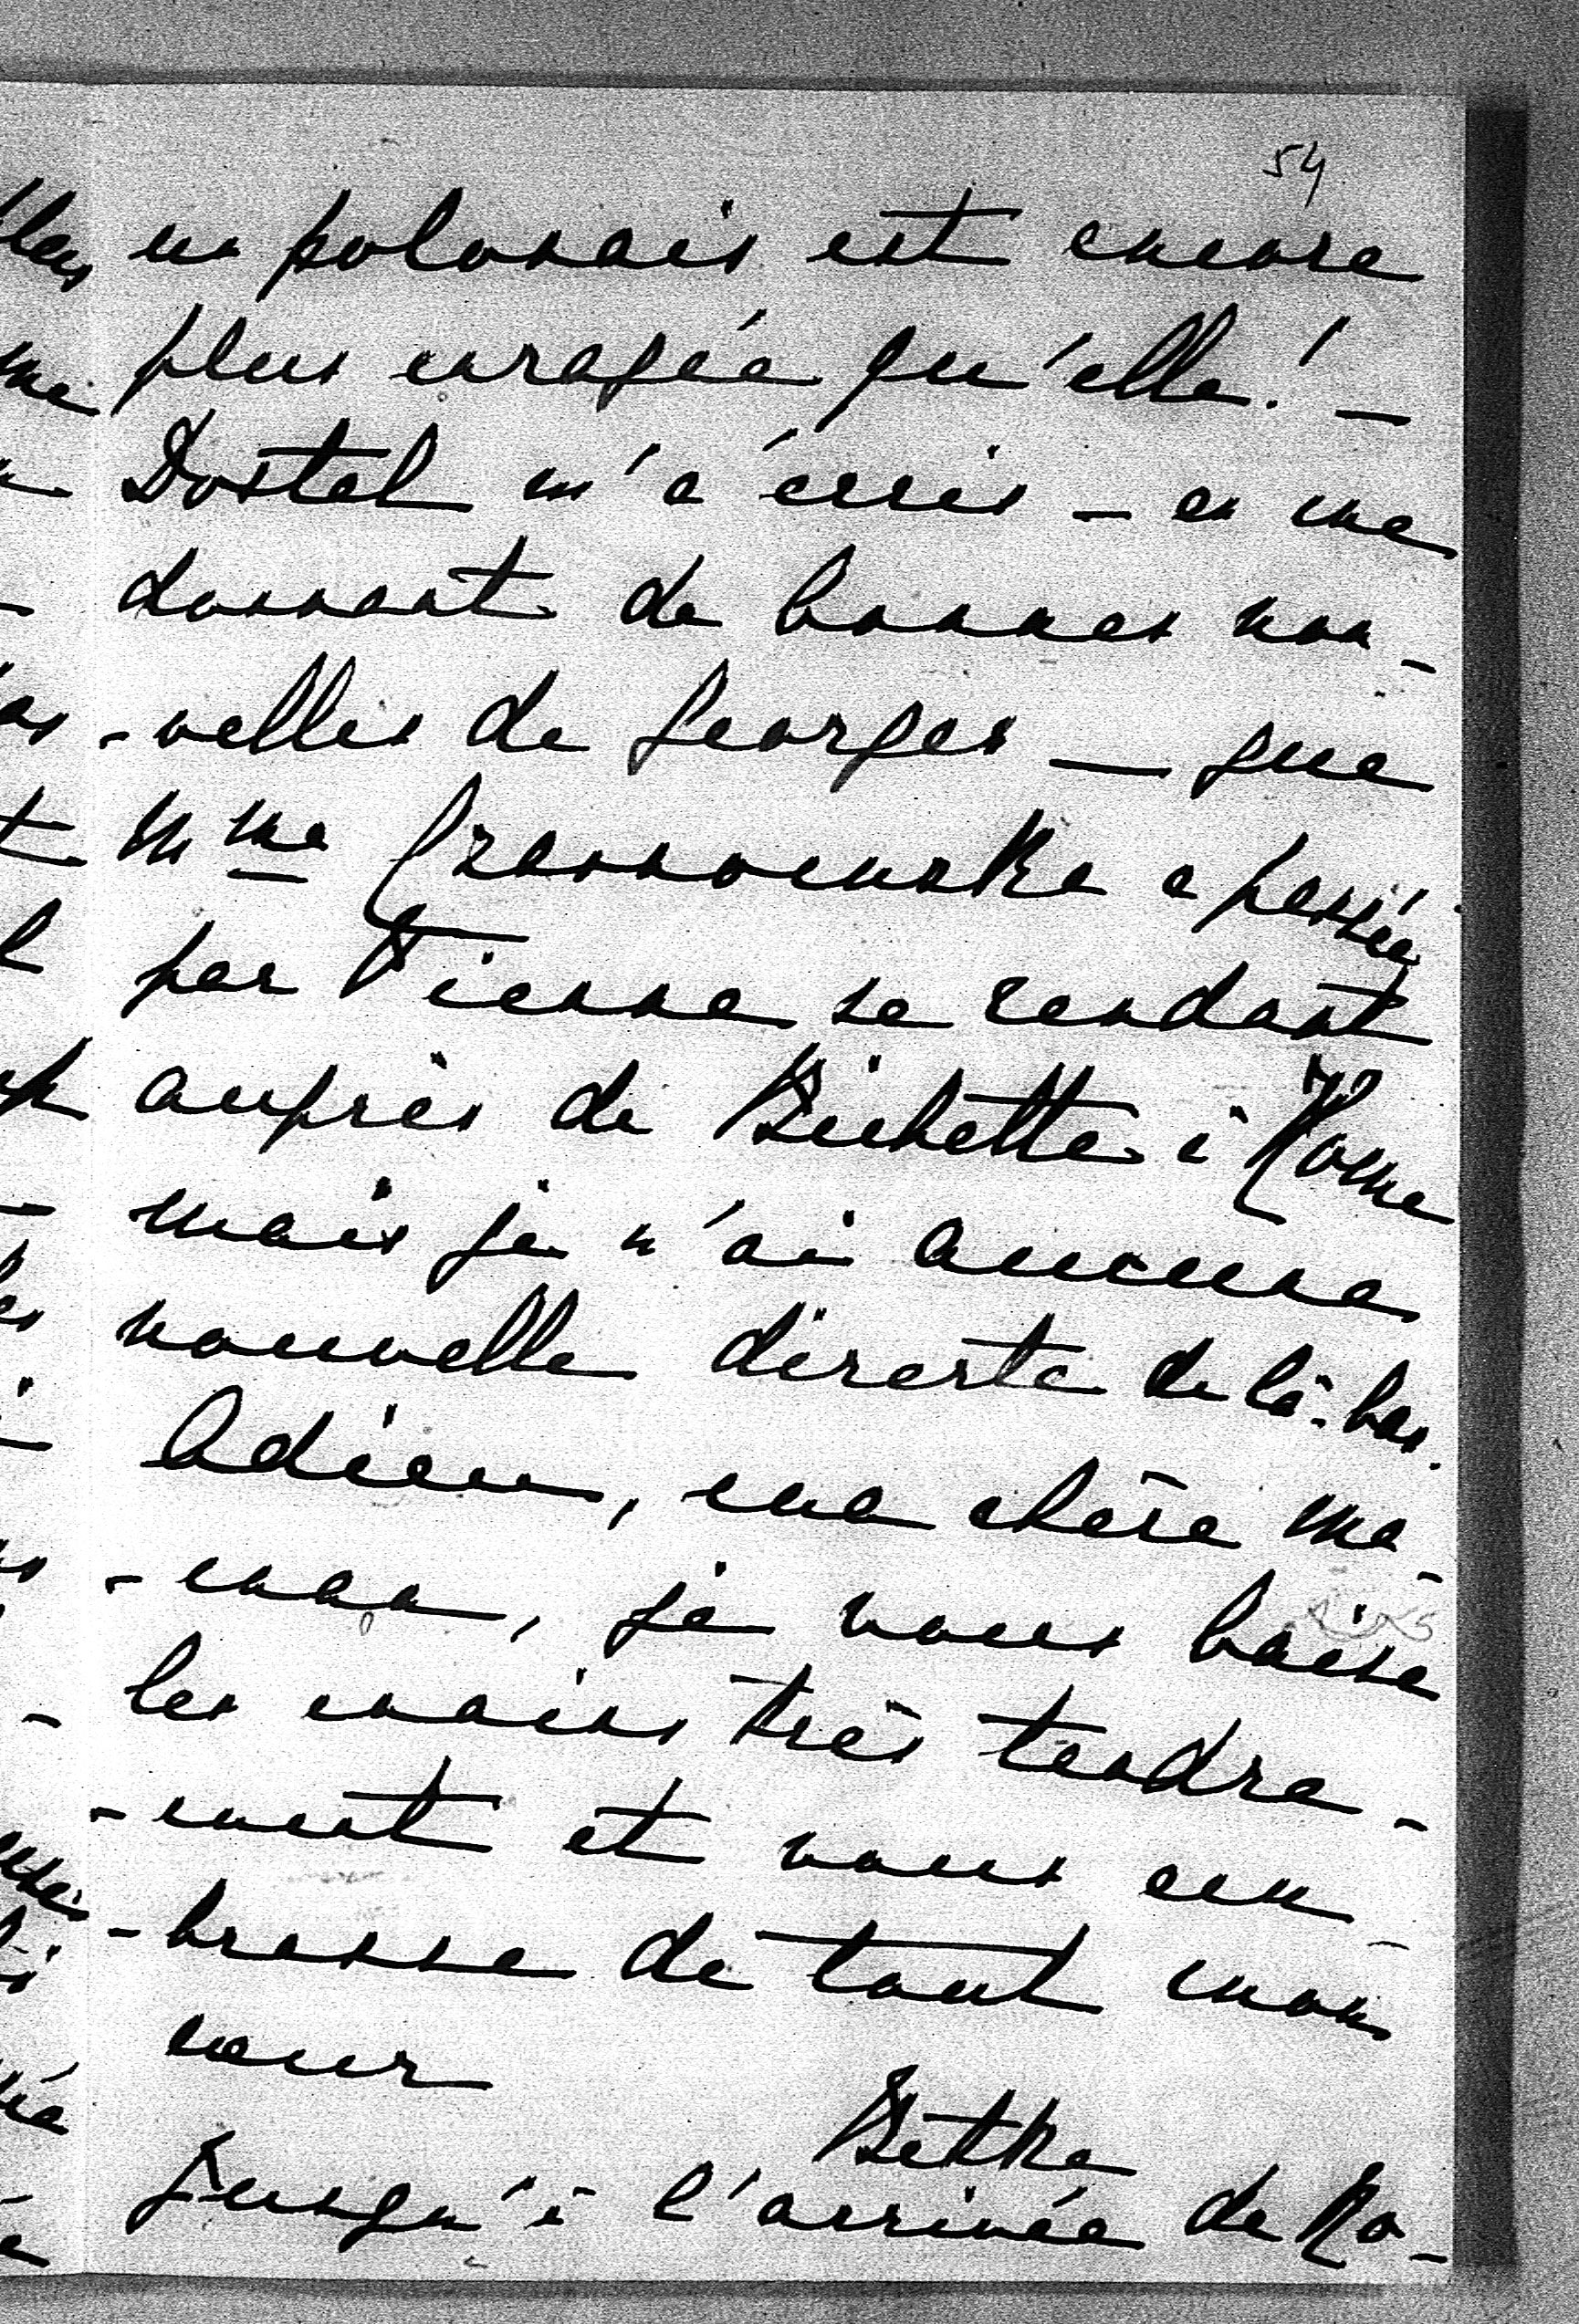 54
en polonais est encore
plus enragée qu'elle! —
Dostal m'a écris – en me
donnant de bonnes nou-
-velles de Georges — que
Mme a passée
par Vienne se rendant
auprès de Bichette à Rome
mais je n'ai aucune
nouvelle directe de là-bas.
Adieu, ma chère ma-
-man, je vous baise
les mains très tendre-
-ment et vous em-
-brasse de tout mon
cœur
Betka
Jusqu'à l'arrivée de Ro-